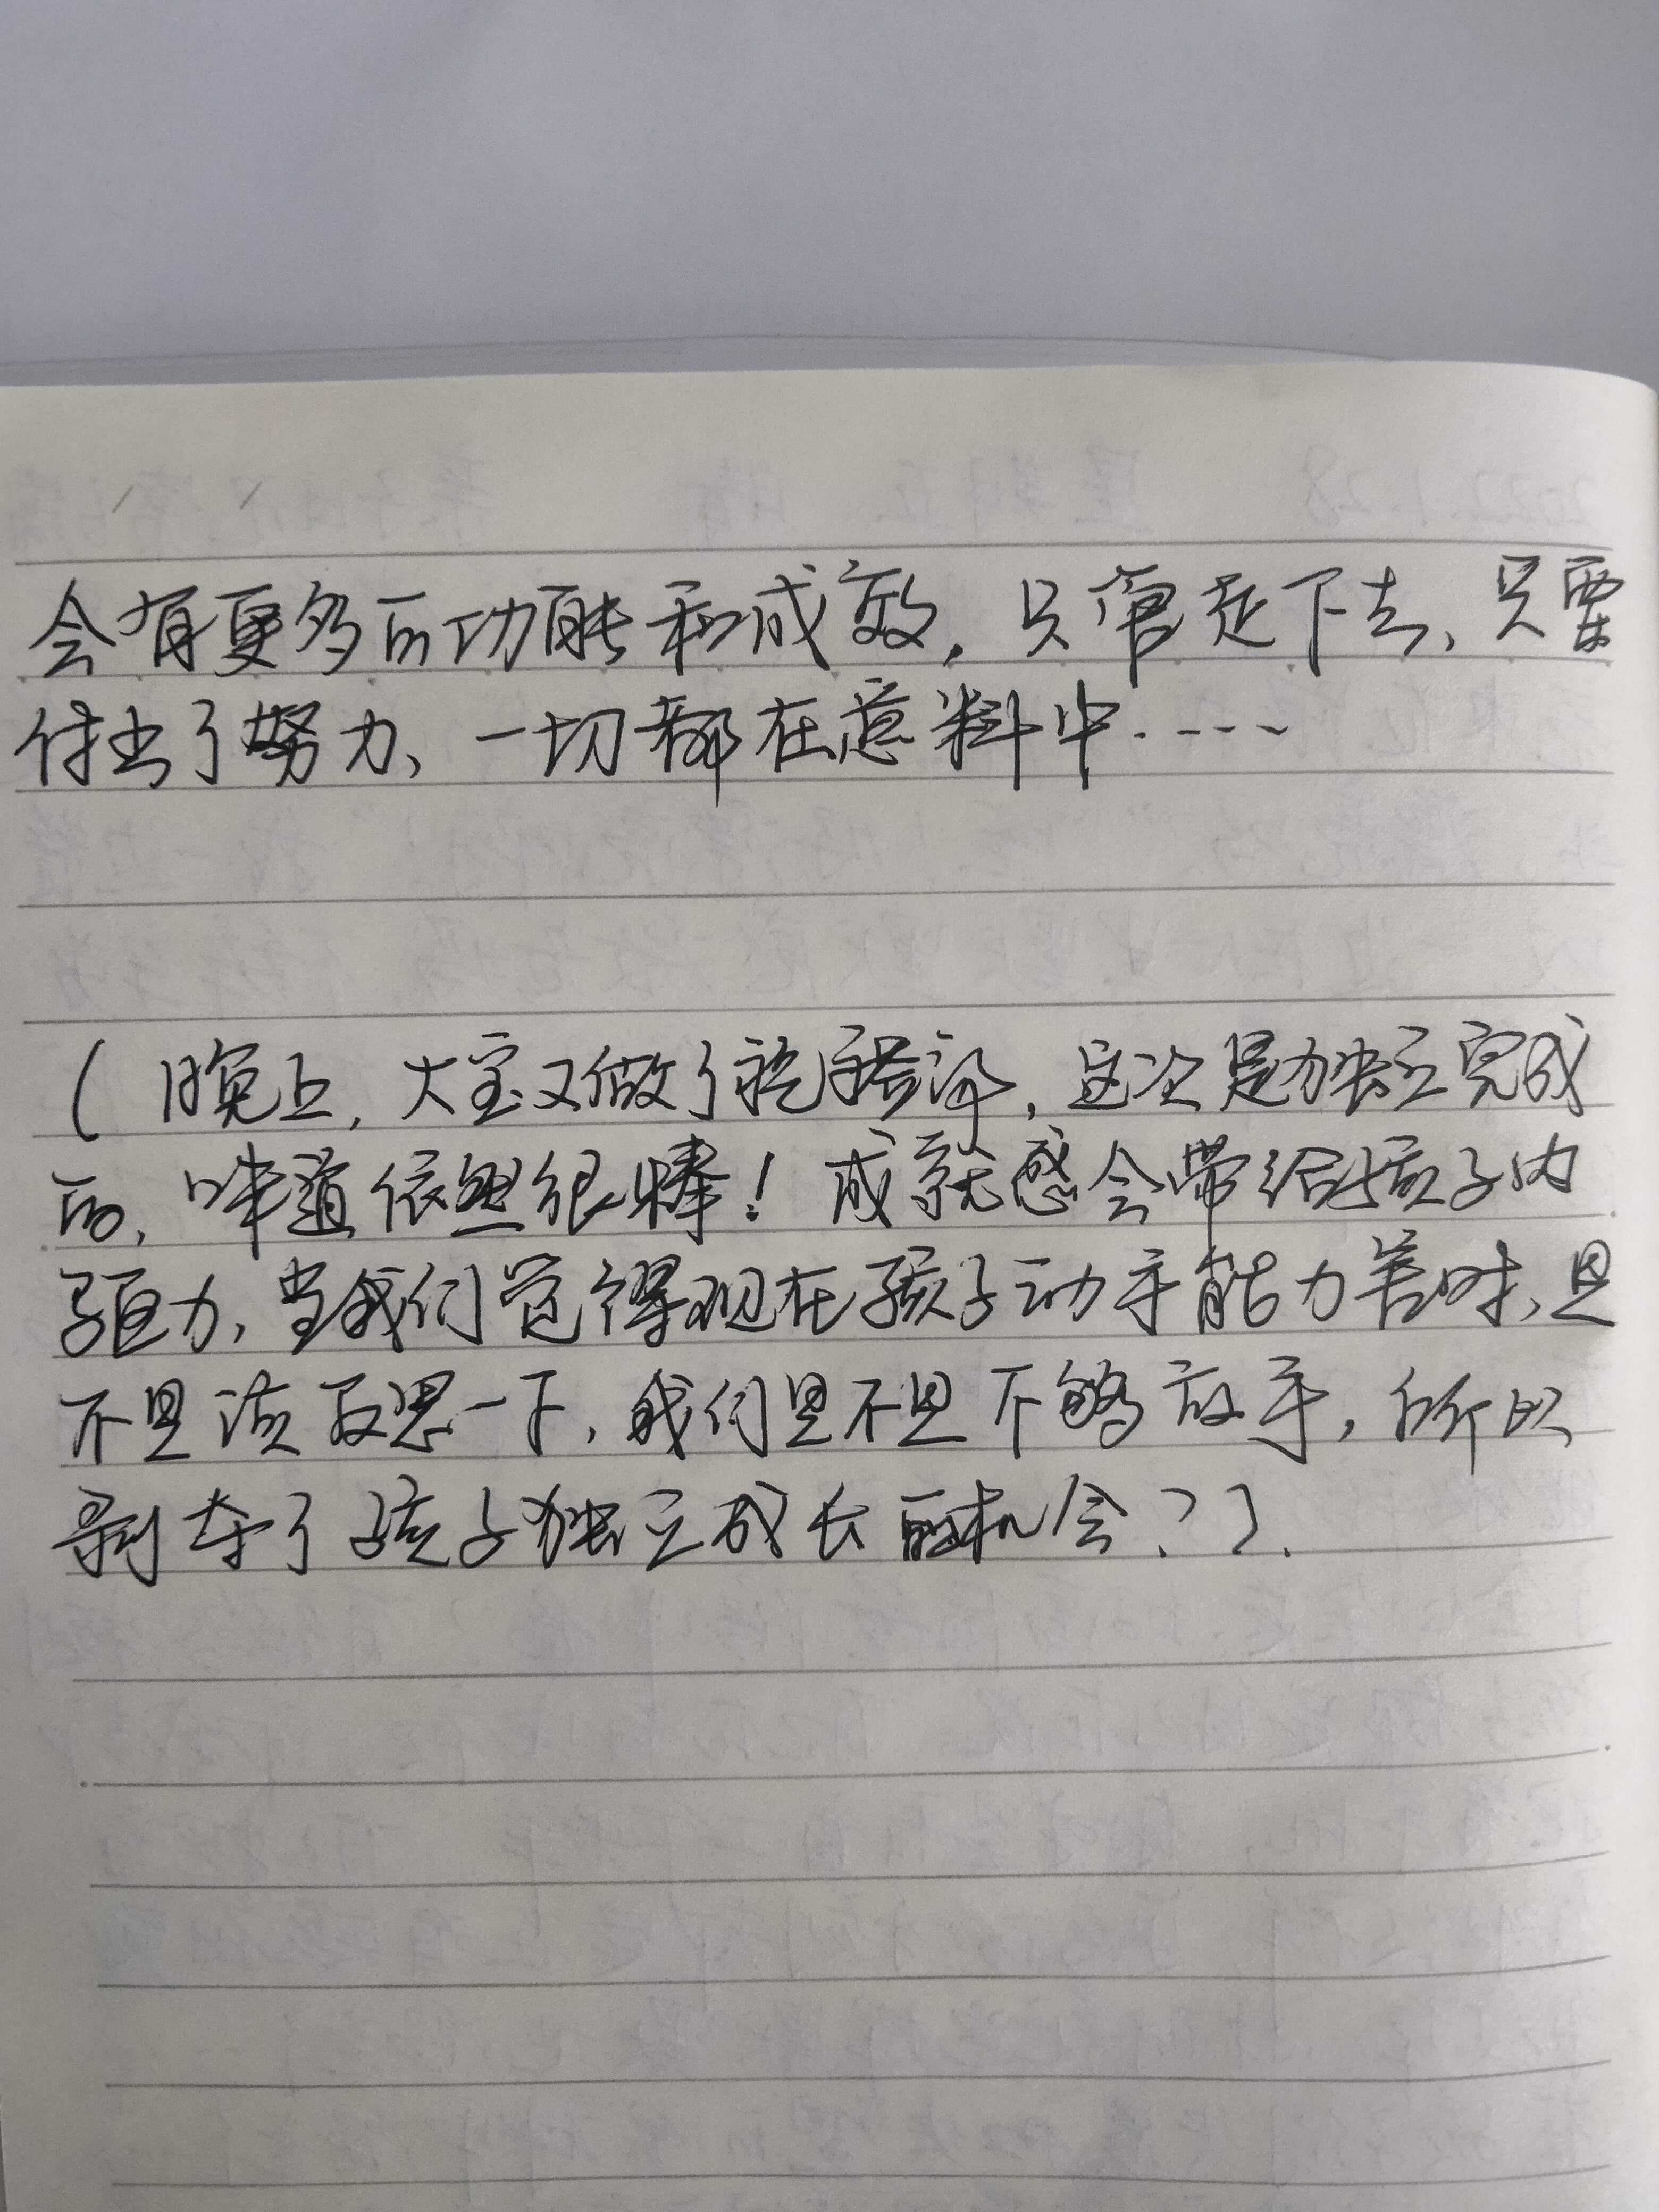 会有更多的功能和成效，只管走下去、只要
付出了努力、一切都在意料中……
（晚上，大宝又做了，这次是独立完成
的，味道依然很棒！成就感会带给孩子内
驱力，当我们觉得现在孩子动手能力差时、是
不是该反思一下，我们是不是不够放手，所以
剥夺了孩子独立成长的机会？）.